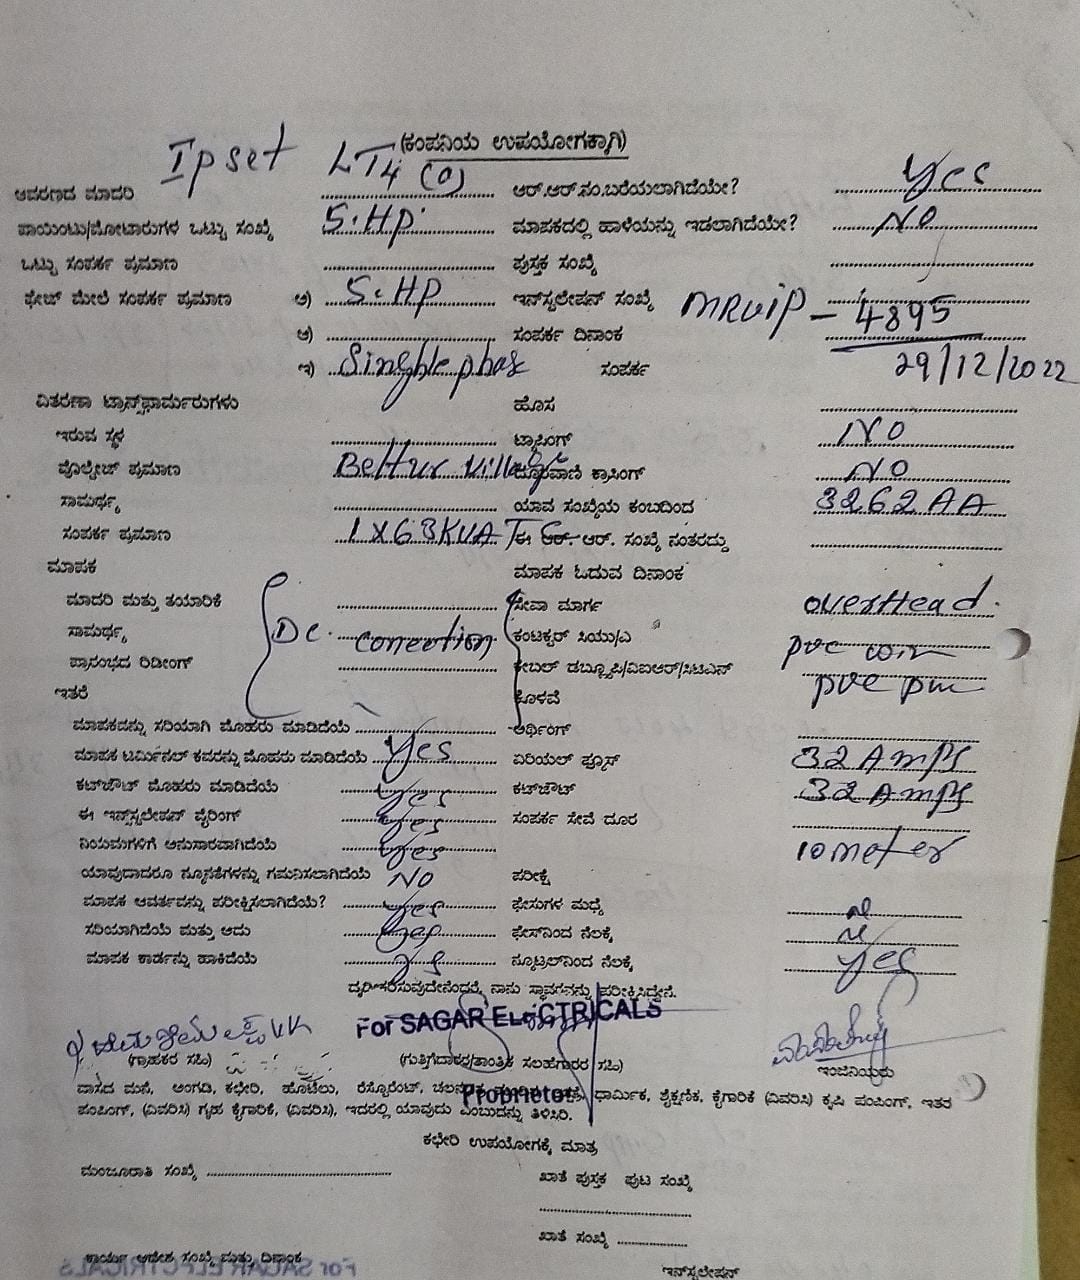 (ಕಂಪನಿಯ ಉಪಯೋಗಕ್ಕಾಗಿ)
Ip set LT4 (0)
ಆವರಣದ ಮಾದರಿ ಆರ್.ಆರ್.ನಂ.ಬರೆಯಲಾಗಿದೆಯೇ? Yes
ಪಾಯಿಂಟು/ಮೋಟಾರುಗಳ ಒಟ್ಟು ಸಂಖ್ಯೆ 5.HP. ಮಾಪಕದಲ್ಲಿ ಹಾಳೆಯನ್ನು ಇಡಲಾಗಿದೆಯೇ? NO
ಒಟ್ಟು ಸಂಪರ್ಕ ಪ್ರಮಾಣ ಪುಸ್ತಕ ಸಂಖ್ಯೆ
ಫೇಜ್ ಮೇಲೆ ಸಂಪರ್ಕ ಪ್ರಮಾಣ ಅ) 5.HP ಇನ್‌ಸ್ಟಲೇಷನ್ ಸಂಖ್ಯೆ MRVIP - 4895
ಆ) ಸಂಪರ್ಕ ದಿನಾಂಕ 29/12/2022
ಇ) Singhle phas ಸಂಪರ್ಕ
ವಿತರಣಾ ಟ್ರಾನ್ಸ್‌ಫಾರ್ಮರುಗಳು ಹೊಸ
ಇರುವ ಸ್ಥಳ ಟ್ಯಾಪಿಂಗ್ NO
ವೊಲ್ಟೇಜ್ ಪ್ರಮಾಣ Beltur Village ದೂರವಾಣಿ ಕ್ರಾಸಿಂಗ್ NO
ಸಾಮರ್ಥ್ಯ ಯಾವ ಸಂಖ್ಯೆಯ ಕಂಬದಿಂದ 3262AA
ಸಂಪರ್ಕ ಪ್ರಮಾಣ 1X63KVA TC ಈ ಆರ್. ಆರ್. ಸಂಖ್ಯೆ ನಂತರದ್ದು
ಮಾಪಕ ಮಾಪಕ ಓದುವ ದಿನಾಂಕ
ಮಾದರಿ ಮತ್ತು ತಯಾರಿಕೆ ಸೇವಾ ಮಾರ್ಗ overHead.
ಸಾಮರ್ಥ್ಯ Dc. conection ಕಂಟಕ್ಟರ್ ಸಿಯು/ಎ pvc
ಪ್ರಾರಂಭದ ರಿಡೀಂಗ್ ಕೇಬಲ್ ಡಬ್ಲ್ಯೂಪಿ/ವಿಐಆರ್/ಸಿಟಿಎಸ್ pvc
ಇತರೆ ಕೊಳವೆ
ಮಾಪಕವನ್ನು ಸರಿಯಾಗಿ ಮೊಹರು ಮಾಡಿದೆಯೆ ಅರ್ಥಿಂಗ್
ಮಾಪಕ ಟರ್ಮಿನಲ್ ಕವರನ್ನು ಮೊಹರು ಮಾಡಿದೆಯೆ yes ಏರಿಯಲ್ ಫ್ಯೂಸ್ 32 Amps
ಕಟ್‌ಔಟ್ ಮೊಹರು ಮಾಡಿದೆಯೆ yes ಕಟ್‌ಔಟ್ 32 Amps
ಈ ಇನ್‌ಸ್ಟಲೇಷನ್ ವೈರಿಂಗ್ yes ಸಂಪರ್ಕ ಸೇವೆ ದೂರ
ನಿಯಮಗಳಿಗೆ ಅನುಸಾರವಾಗಿದೆಯೆ yes 10 meter
ಯಾವುದಾದರೂ ನ್ಯೂನತೆಗಳನ್ನು ಗಮನಿಸಲಾಗಿದೆಯೆ NO ಪರೀಕ್ಷೆ
ಮಾಪಕ ಆವರ್ತವನ್ನು ಪರೀಕ್ಷಿಸಲಾಗಿದೆಯೆ? yes ಫೇಸುಗಳ ಮಧ್ಯೆ
ಸರಿಯಾಗಿದೆಯೆ ಮತ್ತು ಅದು yes ಫೇಸ್‌ನಿಂದ ನೆಲಕ್ಕೆ
ಮಾಪಕ ಕಾರ್ಡನ್ನು ಹಾಕಿದೆಯೆ ನ್ಯೂಟ್ರಲ್‌ನಿಂದ ನೆಲಕ್ಕೆ yes
ದೃಢೀಕರಿಸುವುದೇನೆಂದರೆ, ನಾನು ಸ್ಥಾವರವನ್ನು ಪರೀಕ್ಷಿಸಿದ್ದೇನೆ.
For SAGAR ELECTRICALS
(ಗ್ರಾಹಕರ ಸಹಿ) (ಗುತ್ತಿಗೆದಾರರ/ತಾಂತ್ರಿಕ ಸಲಹೆಗಾರರ ಸಹಿ) ಇಂಜಿನಿಯರು
Proprietor
ವಾಸದ ಮನೆ, ಅಂಗಡಿ, ಕಛೇರಿ, ಹೊಟೆಲು, ರೆಸ್ಟೊರೆಂಟ್, ಧಾರ್ಮಿಕ, ಶೈಕ್ಷಣಿಕ, ಕೈಗಾರಿಕೆ (ವಿವರಿಸಿ) ಕೃಷಿ ಪಂಪಿಂಗ್, ಇತರ
ಪಂಪಿಂಗ್, (ವಿವರಿಸಿ) ಗೃಹ ಕೈಗಾರಿಕೆ, (ವಿವರಿಸಿ), ಇದರಲ್ಲಿ ಯಾವುದು ಎಂಬುದನ್ನು ತಿಳಿಸಿರಿ.
ಕಛೇರಿ ಉಪಯೋಗಕ್ಕೆ ಮಾತ್ರ
ಮಂಜೂರಾತಿ ಸಂಖ್ಯೆ ಖಾತೆ ಪುಸ್ತಕ ಪುಟ ಸಂಖ್ಯೆ
ಖಾತೆ ಸಂಖ್ಯೆ
ಕಾರ್ಯ ಆದೇಶ ಸಂಖ್ಯೆ ಮತ್ತು ದಿನಾಂಕ ಇನ್‌ಸ್ಟಲೇಷನ್